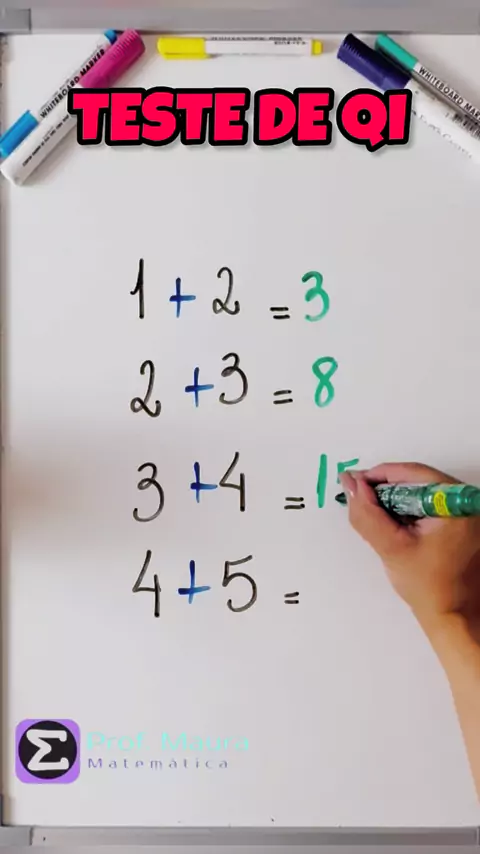 WHITEBOARD MARKER
WHITEBOARD MARKER
TESTE DE QI
1 + 2 = 3
2 + 3 = 8
3 + 4 = 15
4 + 5 =
Prof. Maura
Matemática